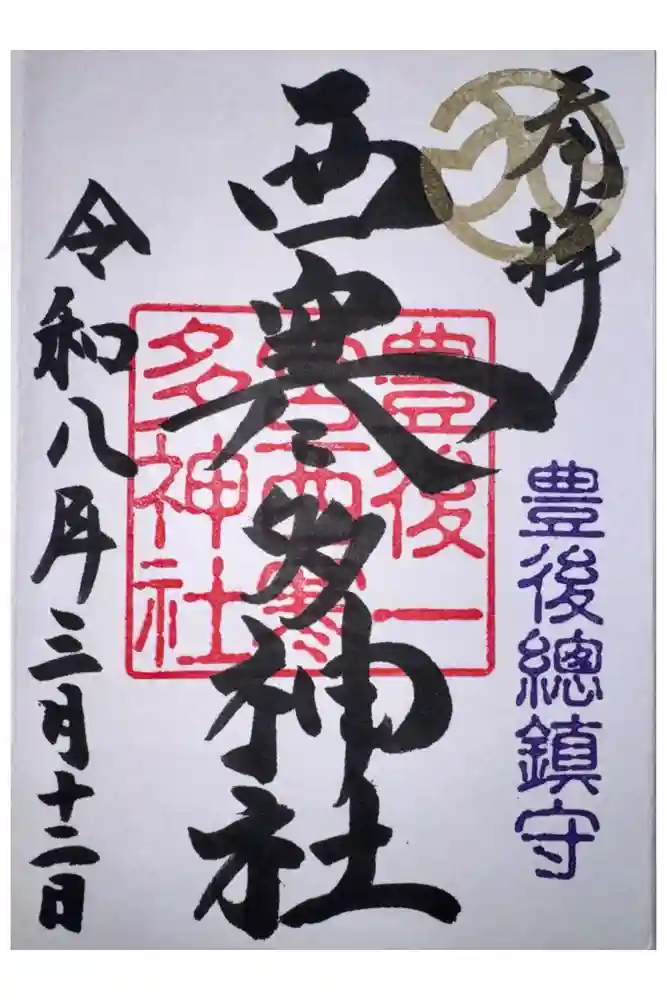 奉拝
豊後總鎮守
西寒多神社
豊後一
宮西寒
多神社
令和八年三月十二日